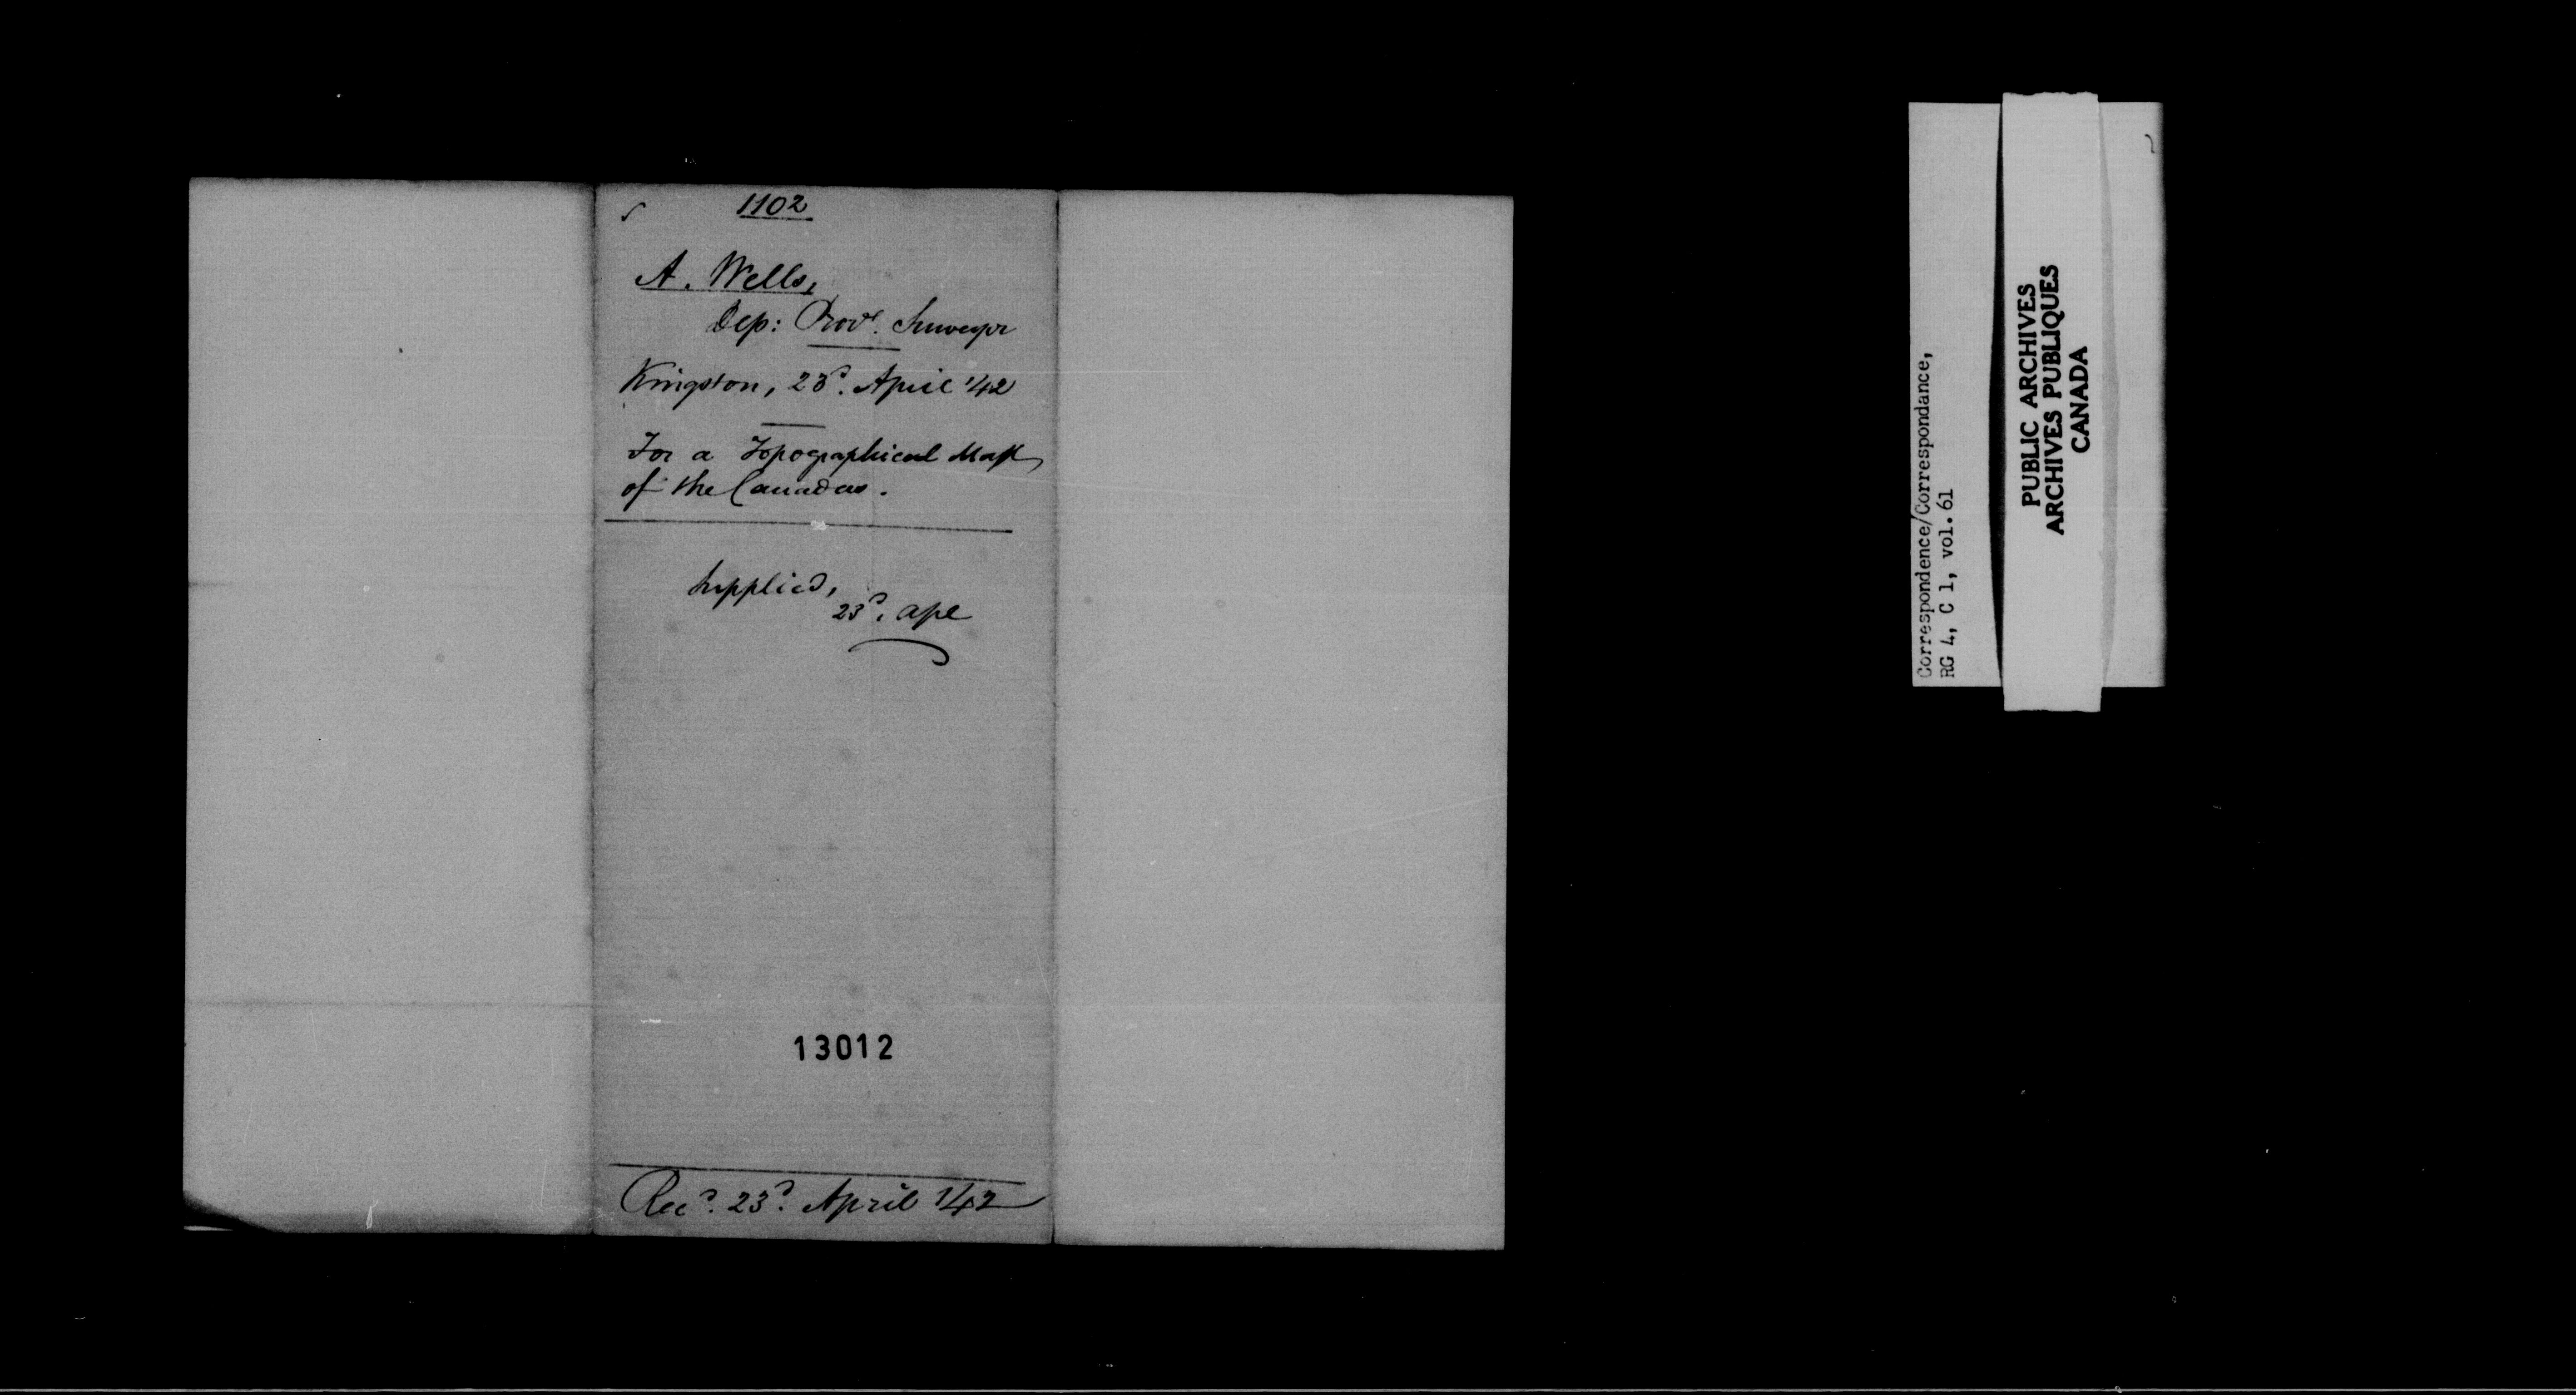 1102
A. Wells,
Dep: Provl. Surveyor
Kingston, 23d. April '42
For a Topographical Map
of the Canadas.
Supplied,
23d. Apl
13012
Recd. 23d. April '42
Correspondence/Correspondance,
RG 4, C 1, vol. 61
PUBLIC ARCHIVES
ARCHIVES PUBLIQUES
CANADA